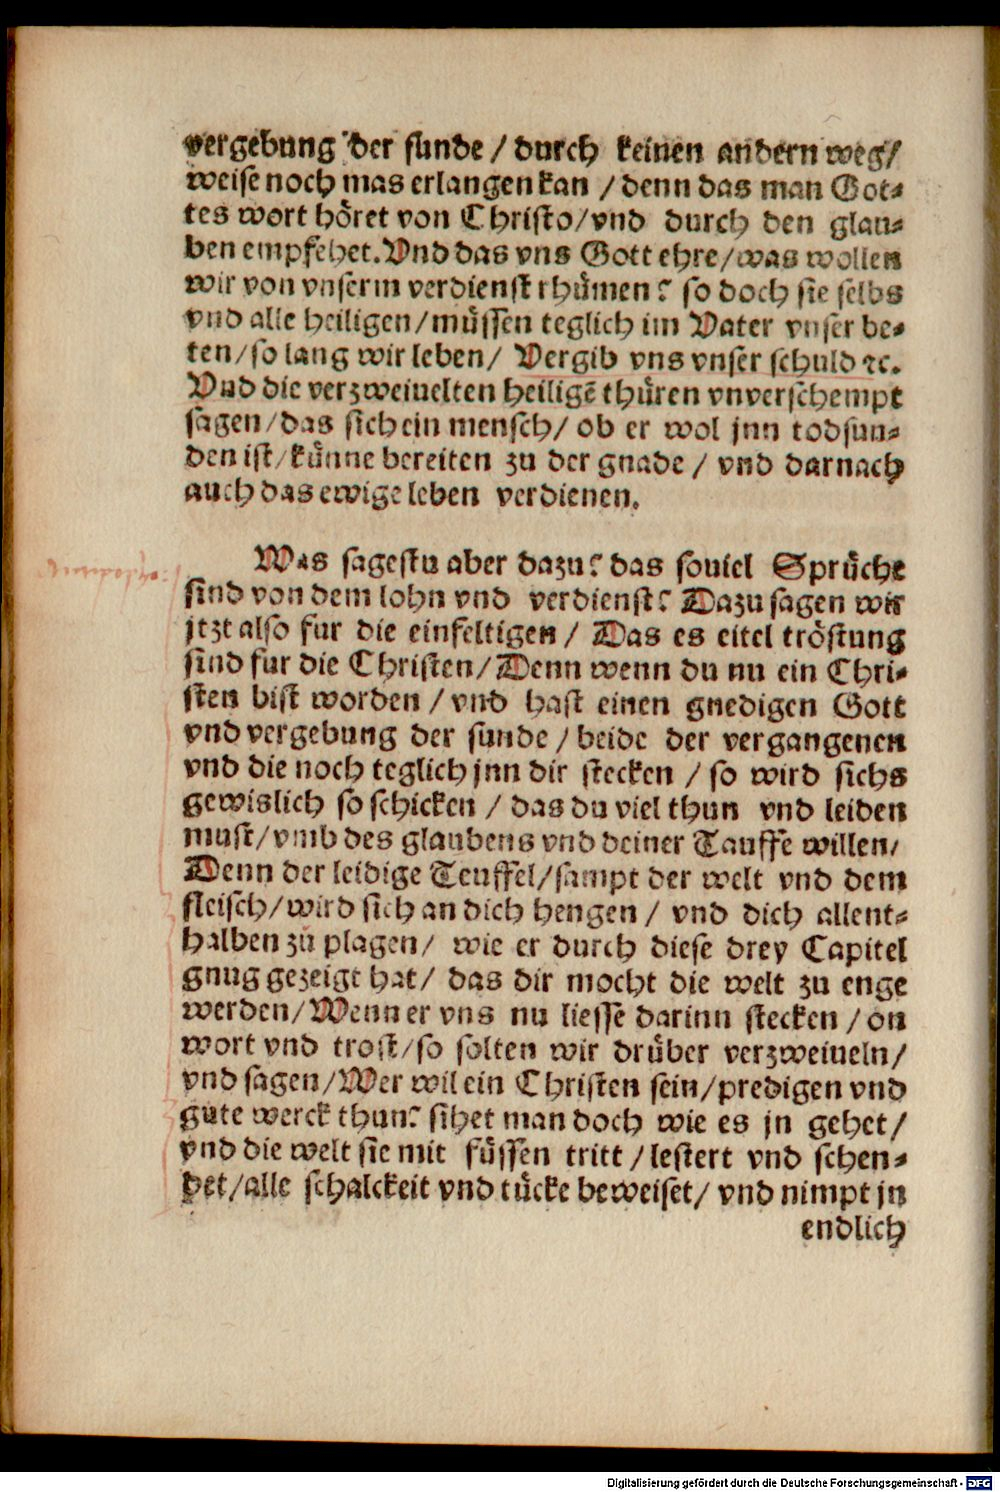 vergebung der sunde / durch keinen andern weg /
weise noch mas erlangen kan / denn das man Got-
tes wort höret von Christo / vnd durch den glau-
ben empfehet. Vnd das vns Gott ehre / was wollen
wir von vnserm verdienst rhümen? so doch sie selbs
vnd alle heiligen / müssen teglich im Vater vnser be-
ten / so lang wir leben / Vergib vns vnser schuld ꝛc.
Vnd die verzweiuelten heiligē thüren vnverschempt
sagen / das sich ein mensch / ob er wol jnn todsun-
den ist / künne bereiten zu der gnade / vnd darnach
auch das ewige leben verdienen.
Was sagestu aber dazu? das souiel Sprüche
sind von dem lohn vnd verdienst? Dazu sagen wir
jtzt also fur die einfeltigen / Das es eitel tröstung
sind fur die Christen / Denn wenn du nu ein Chri-
sten bist worden / vnd hast einen gnedigen Gott
vnd vergebung der sunde / beide der vergangenen
vnd die noch teglich jnn dir stecken / so wird sichs
gewislich so schicken / das du viel thun vnd leiden
must / vmb des glaubens vnd deiner Tauffe willen /
Denn der leidige Teuffel / sampt der welt vnd dem
fleisch / wird sich an dich hengen / vnd dich allent-
halben zu plagen / wie er durch diese drey Capitel
gnug gezeigt hat / das dir mocht die welt zu enge
werden / Wenn er vns nu liesse darinn stecken / on
wort vnd trost / so solten wir drüber verzweiueln /
vnd sagen / Wer wil ein Christen sein / predigen vnd
gute werck thun? sihet man doch wie es jn gehet /
vnd die welt sie mit füssen tritt / lestert vnd schen-
det / alle schalckeit vnd tücke beweiset / vnd nimpt jn
endlich
Digitalisierung gefördert durch die Deutsche Forschungsgemeinschaft - DFG